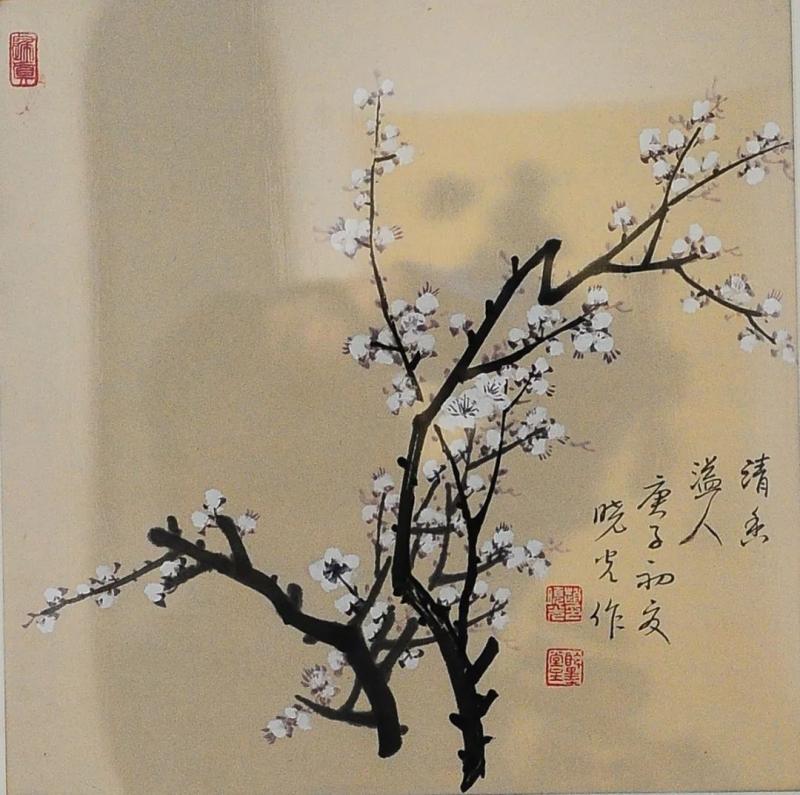 清香
溢人
庚子初夏
晓光作